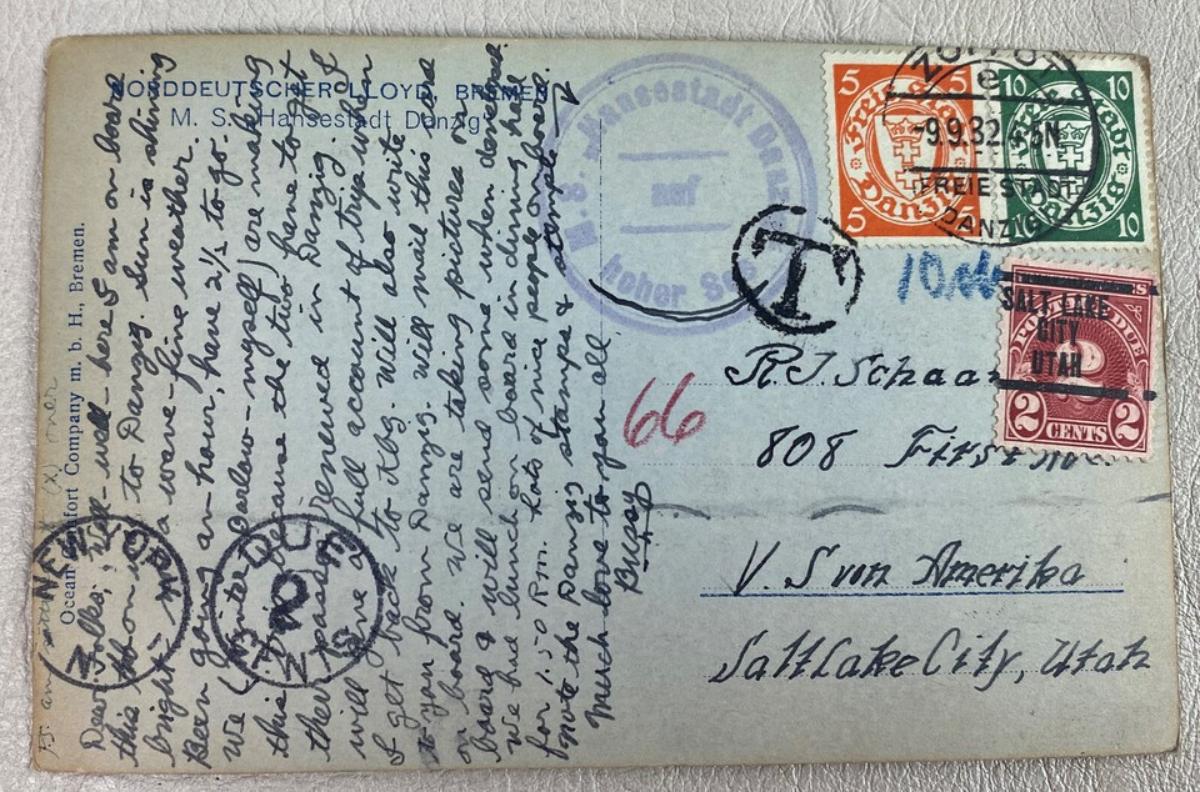 NORDDEUTSCHER LLOYD, BREMEN
M. S. „Hansestadt Danzig"
Ocean Comfort Company m. b. H., Bremen.
Dear Folks; Well-well- here I am on board
this ship on way to Danzig. Sun is shining
bright - not a wave - fine weather.
Been going an-hour, have 2½ to go.
We (Winter, Darlow - myself) are making
this trip because the two have to get
their passports renewed in Danzig. I
will give a full account of trip when
I get back to Kbg. Will also write
to you from Danzig. Will mail this card
on board. We are taking pictures on
board & will send some when developed.
We had lunch on board in dining hall
for 1.50 Rm. Lots of nice people on board.
Note the Danzig stamps & stamp
Much love to you all
Bussy
M. S. Hansestadt Danzig
auf
hoher See
T
5 5
Freie Stadt
Danzig
5 5
10 10
Freie Stadt
Danzig
10 10
ZOPPOT
e
-9.9.32.4-5N
FREIE STADT
DANZIG
10
SALT LAKE
CITY
UTAH
POSTAGE DUE
2
2 CENTS 2
66
R J Schaa
808 First Ave.
V S von Amerika
Salt Lake City, Utah
NEW YORK
N.Y.
DUE
2
CENTS